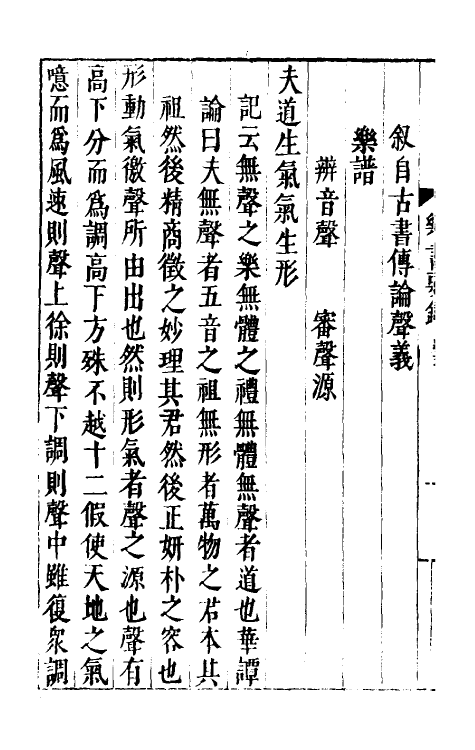 叙自古書傳論聲義
樂譜
辨音聲　審聲源
夫道生氣氣生形
記云無聲之樂無體之禮無體無聲者道也華譚
論曰夫無聲者五音之祖無形者萬物之君本其
祖然後精商徵之妙理其君然後正妍朴之容也
形動氣徼聲所由出也然則形氣者聲之源也聲有
高下分而爲調高下方殊不越十二假使天地之氣
噫而爲風速則聲上徐則聲下調則聲中雖復衆調